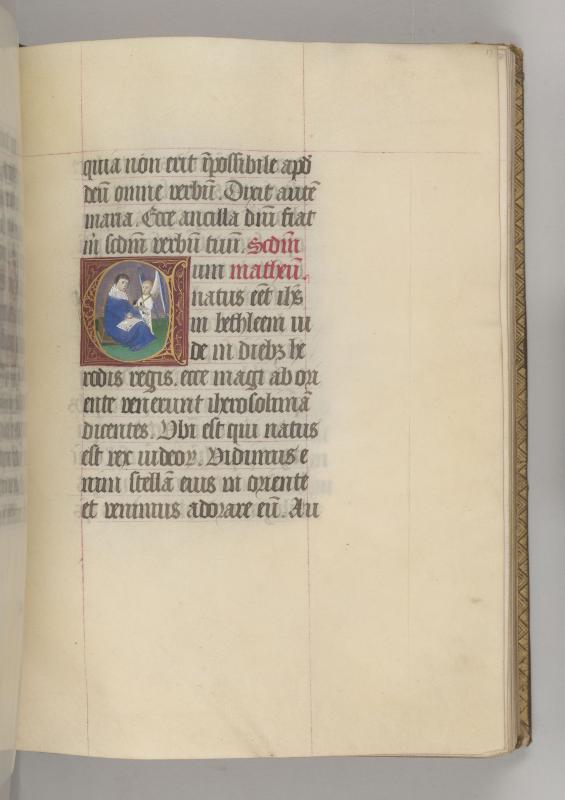 quia non erit īpossibile apd̄
deū omne verbū. Dixit autē
maria. Ecce ancilla dnī fiat
m̄ scdm̄ verbū tuū. Scdm̄
um matheū.
natus eēt ihs̄
in bethleem iu
de in diebꝫ he
rodis regis. ecce magi ab ori
ente venerunt iherosolimā
dicentes. Vbi est qui natus
est rex iudeoꝝ. Vidimus e
nim stellā eius in oriente
et venimus adorare eū. Au